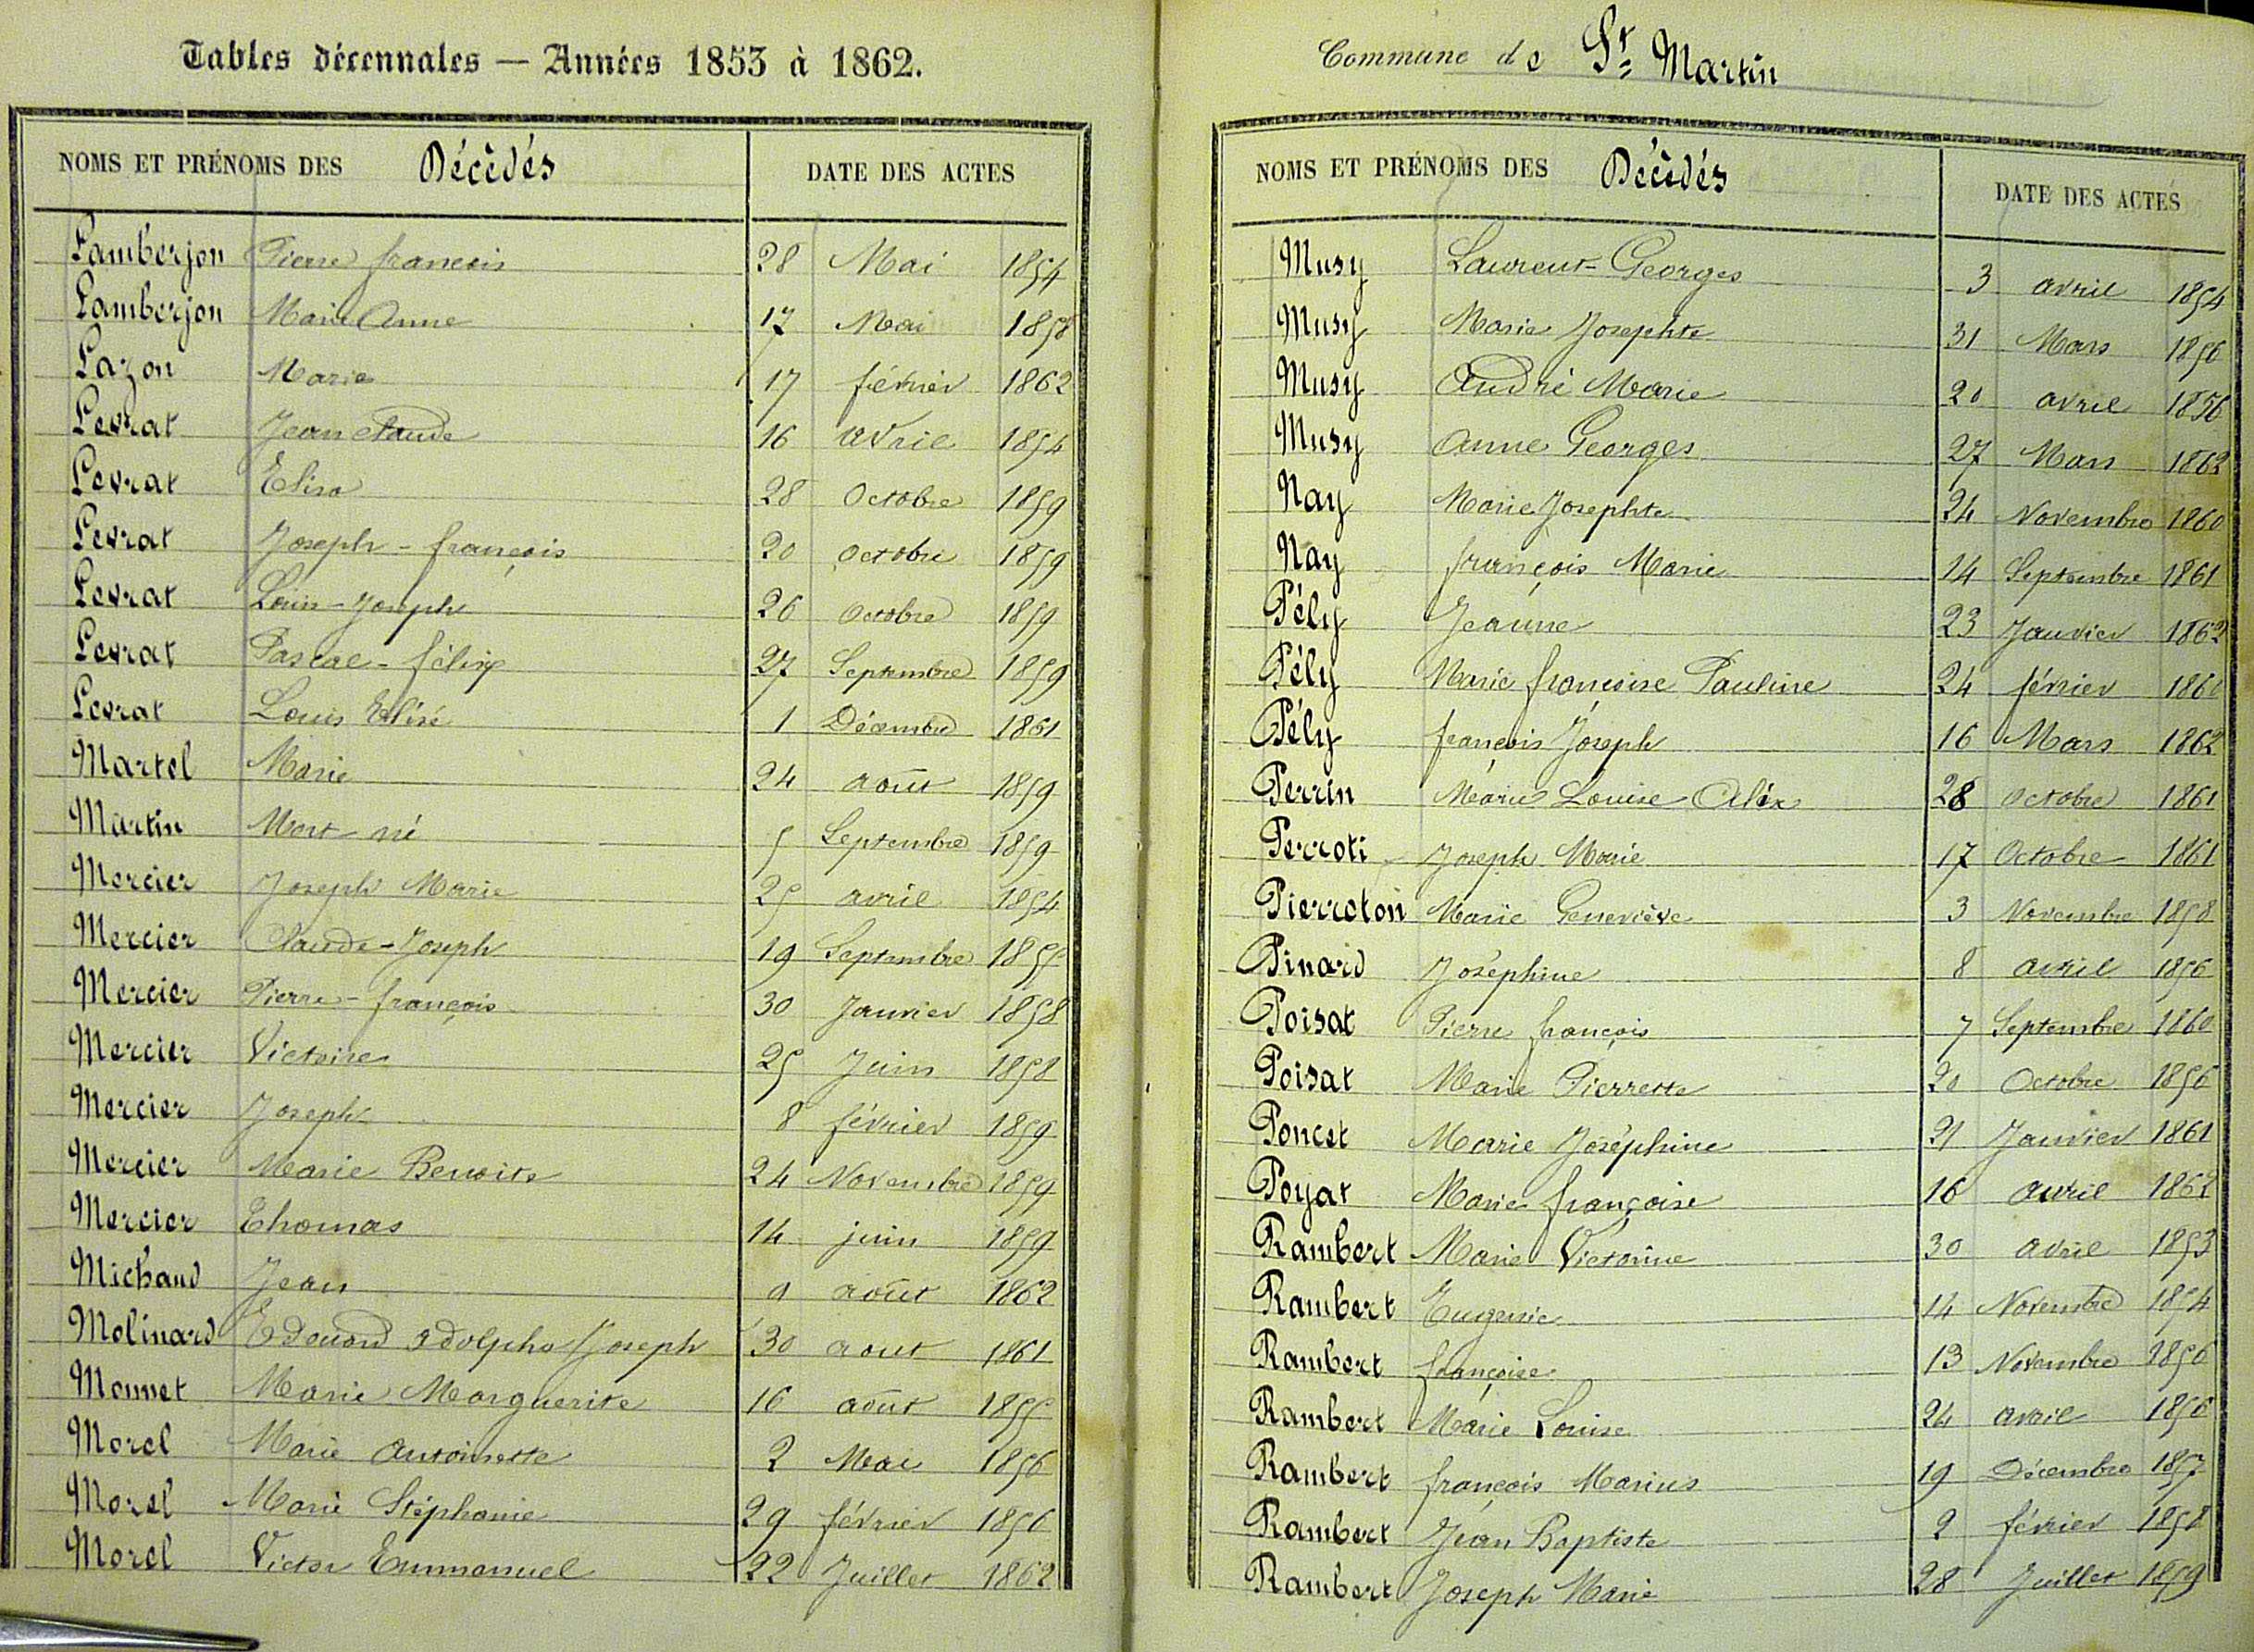 Tables décennales — Années 1853 à 1862.
NOMS ET PRÉNOMS DES Décédés DATE DES ACTES
Lamberjon Pierre françois 28 Mai 1854
Lamberjon Marie Anne 17 Mai 1858
Lazon Marie 17 février 1862
Levrat Jean Claude 16 avril 1854
Levrat Elisa 28 Octobre 1859
Levrat Joseph - françois 20 octobre 1859
Levrat Louis - Joseph 26 octobre 1859
Levrat Pascal - félix 27 Septembre 1859
Levrat Louis Elisé 1 Décembre 1861
Martel Marie 24 août 1859
Martin Mort né 5 Septembre 1859
Mercier Joseph Marie 25 avril 1854
Mercier Claude - Joseph 19 Septembre 1855
Mercier Pierre - françois 30 Janvier 1858
Mercier Victoire 25 Juin 1858
Mercier Joseph 8 février 1859
Mercier Marie Benoite 24 Novembre 1859
Mercier Thomas 14 juin 1859
Michaud Jean août 1862
Molinard Edouard adolphe Joseph 30 aout 1861
Monnet Marie Marguerite 16 août 1855
Morel Marie Antoinette 2 Mai 1856
Morel Marie Stéphanie 29 février 1856
Morel Victor Emmanuel 22 Juillet 1862
Commune de St Martin
NOMS ET PRÉNOMS DES Décédés DATE DES ACTES
Musy Laurent - Georges 3 avril 1854
Musy Marie Josephte 31 Mars 1856
Musy André Marie 20 avril 1856
Musy Anne Georges 27 Mars 1862
Nay Marie Josephte 24 Novembre 1860
Nay françois Marie 14 Septembre 1861
Pély Jeanne 23 Janvier 1862
Pély Marie françoise Pauline 24 février 1860
Pély françois Joseph 16 Mars 1862
Perrin Marie Louise Aléx 28 octobre 1861
Perroti Joseph Marie 17 Octobre 1861
Pierroton Marie Geneviève 3 Novembre 1858
Pinard Joséphine 8 avril 1856
Poisat Pierre françois 7 Septembre 1860
Poisat Marie Pierrette 20 Octobre 1856
Poncet Marie Joséphine 21 Janvier 1861
Poyat Marie françoise 16 avril 1862
Rambert Marie Victorine 30 avril 1853
Rambert Eugenie 14 Novembre 1854
Rambert françoise 13 Novembre 1856
Rambert Marie Louise 24 avril 1856
Rambert françois Marius 19 Décembre 1857
Rambert Jean Baptiste 2 février 1858
Rambert Joseph Marie 28 Juillet 1859